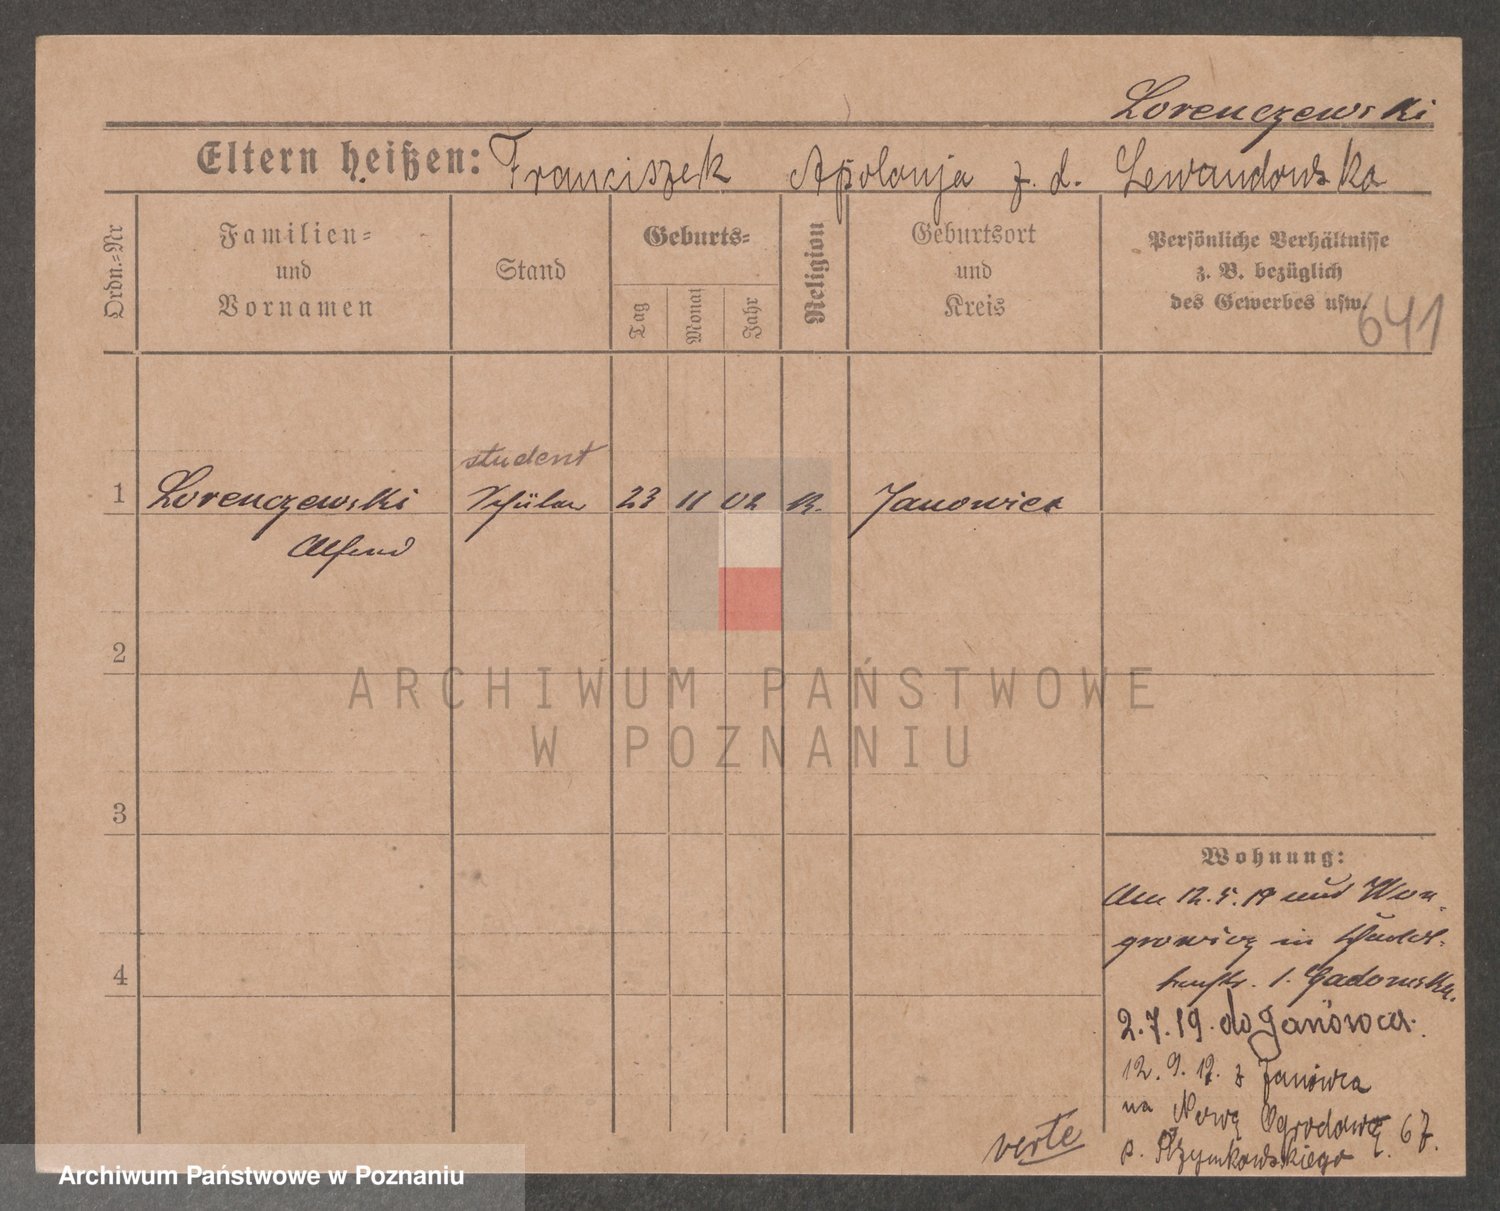 Lorenczewski
Eltern heißen: Franciszek Apolonja z. d. Lewandowska
Ordn.-Nr
Familien-
und
Vornamen
Stand
Geburts-
Tag
Monat
Jahr
Religion
Geburtsort
und
Kreis
Persönliche Verhältnisse
z. B. bezüglich
des Gewerbes usw.
641
student
1 Lorenczewski Schüler 23 11 02 K. Janowiec
Alfred
2
3
4
ARCHIWUM PAŃSTWOWE
W POZNANIU
Wohnung:
Am 12.5.19 und Won-
growicz in
l. Gadomska.
2.7.19. do Janowca.
12.9.19. z Janówca
na Nową Ogrodową 67.
p. Szymkowskiego
verte
Archiwum Państwowe w Poznaniu